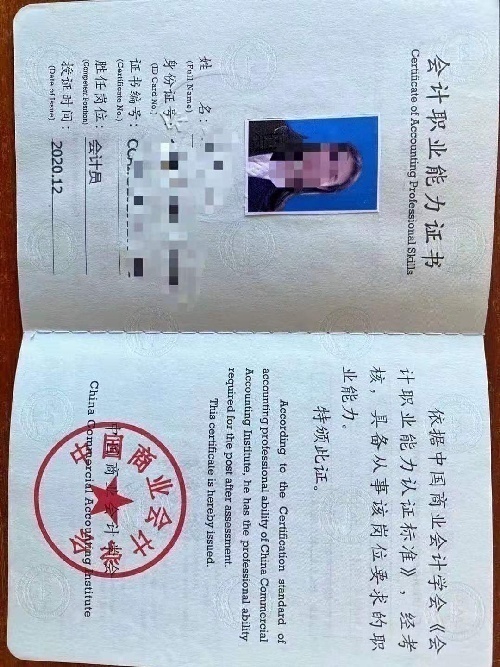 会计职业能力证书
Certificate of Accounting Professional Skills
姓 名：
(Full Name)
身份证号：
(ID Card No.)
证书编号：
(Certificate No.)
胜任岗位：会计员
(Competent Position)
授证时间：2020.12
(Date of Issue)
依据中国商业会计学会《会
计职业能力认证标准》，经考
核，具备从事该岗位要求的职
业能力。
特颁此证。
According to the Certification standard of
accounting professional ability of China Commercial
Accounting Institute, he has the professional ability
required for the post after assessment.
This certificate is hereby issued.
中国商业会计学会
China Commercial Accounting Institute
中国商业会计学会